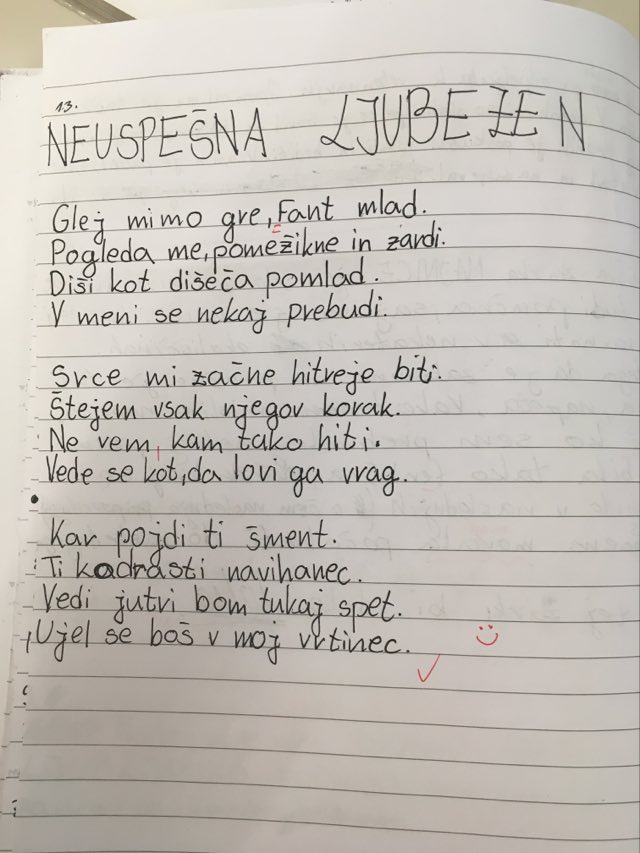 13.
NEUSPEŠNA LJUBEZEN
Glej mimo gre, Fant mlad.
Pogleda me, pomežikne in zardi.
Diši kot dišeča pomlad.
V meni se nekaj prebudi.
Srce mi začne hitreje biti.
Štejem vsak njegov korak.
Ne vem, kam tako hiti.
Vede se kot, da lovi ga vrag.
Kar pojdi ti šment.
Ti kodrasti navihanec.
Vedi jutri bom tukaj spet.
Ujel se boš v moj vrtinec.